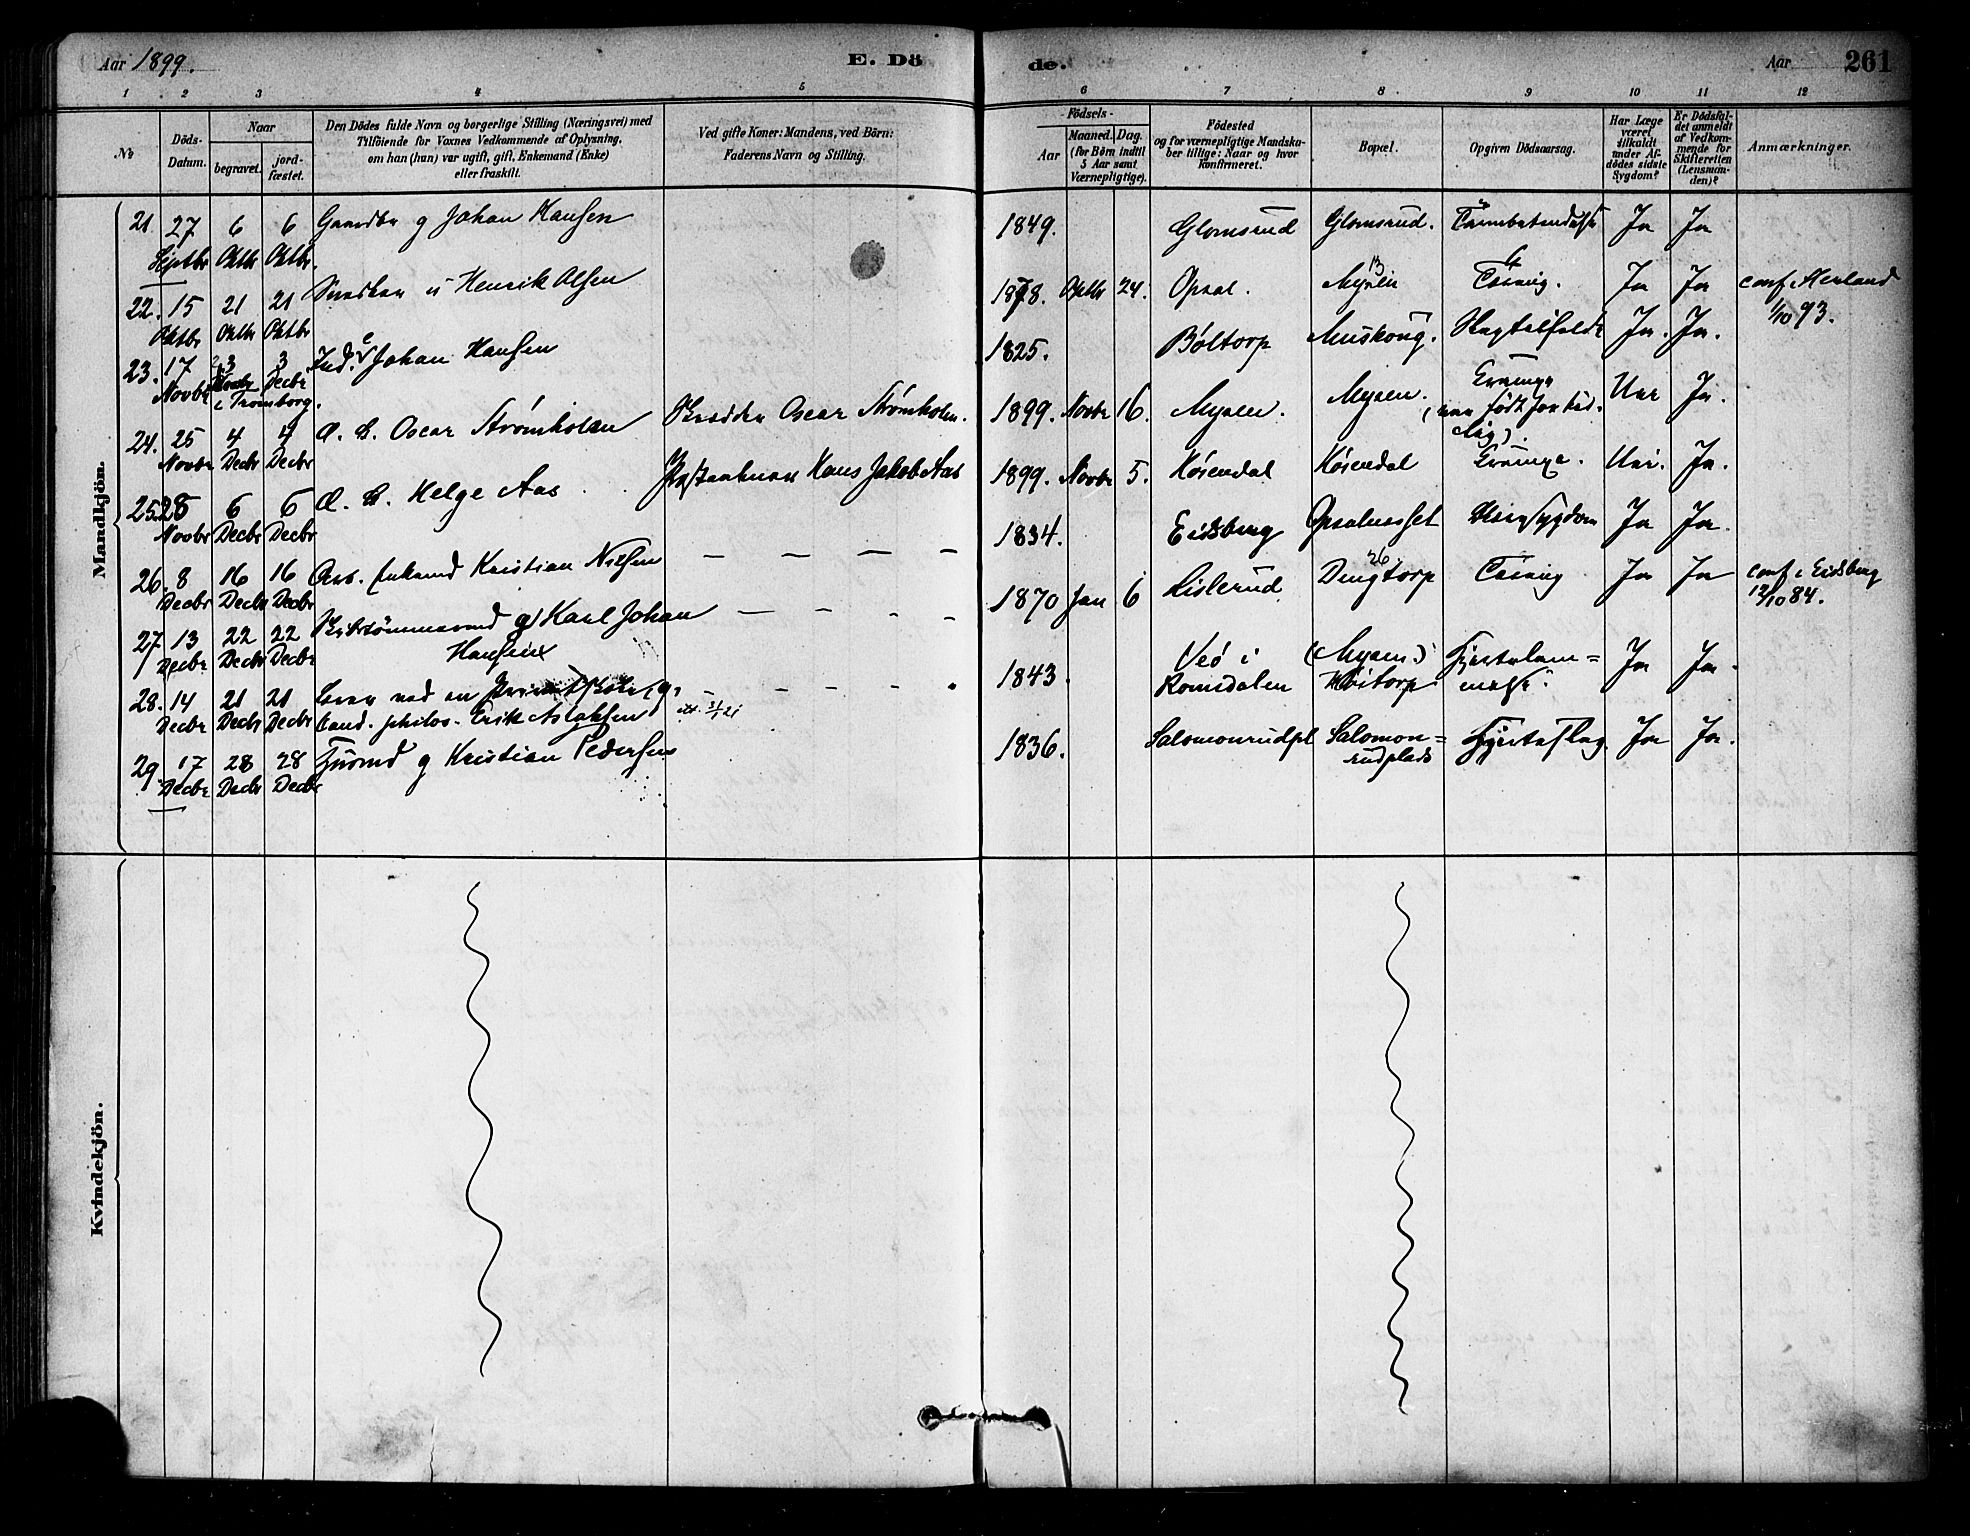 Aar 1899.
E. Dö
de.
Aar
261
1 2 3 4 5 6 7 8 9 10 11 12
No
Döds-
Datum.
Naar
begravet.
jord-
fæstet.
Den Dödes fulde Navn og borgerlige Stilling (Næringsvei) med
Tilföiende for Voxnes Vedkommende af Oplysning,
om han (hun) var ugift, gift, Enkemand (Enke)
eller fraskilt.
Ved gifte Koner: Mandens, ved Börn:
Faderens Navn og Stilling.
Födsels-
Aar
Maaned.
Dag.
(for Börn indtil
5 Aar samt
Værnepligtige).
Födested
og for værnepligtige Mandska-
ber tillige: Naar og hvor
konfirmeret.
Bopæl.
Opgiven Dödsaarsag.
Har Læge
været
tilkaldt
under Af-
dödes sidste
Sygdom?
Er Dödsfal-
det anmeldt
af Vedkom-
mende for
Skifteretten
(Lensman-
den)?
Anmærkninger.
Mandkjön.
21. 27 6 6 Gaardbr g Johan Hansen 1849. Glomsrud Glomsrud. Ja Ja
Septbr Oktbr Oktbr.
22. 15 21 21 Snedker u Henrik Olsen 1878. Oktbr 24. Opsal. Mysen Tæring. Ja Ja conf. Herland
Oktbr Oktbr Oktbr 1/10 93.
23. 17 3 3 Ind. Johan Hansen 1825. Bøltorp Ja. Ja.
Novbr Decbr
i Tromborg.
24. 25 4 4 Oscar Strømholm Skrædder Oscar Strømholm. 1899. Novbr 16. Mysen. Mysen. Krampe Nei Ja.
Novbr Decbr Decbr (var født for tid-
lig).
25. 28 6 6 Helge Aas Hans Jakob Aas 1899. Novbr 5. Kåsendal Kåsendal Krampe. Nei. Ja.
Novbr Decbr Decbr
26. 8 16 16 Arb. Enkemd Kristian Nilsen 1834. Eidsberg Ja Ja.
Decbr Decbr Decbr
27 13 22 22 g Karl Johan 1870 Jan 6 Lislerud 26 Dingtorp Tæring Ja Ja conf. i Eidsberg
Decbr Decbr Decbr Hansen 12/10 84.
28. 14 21 21 Lærer ved en Privatskole, g, 1843. Veø i (Mysen.) Hjertelam- Ja Ja.
Decbr Decbr Decbr Cand. philos. Erik Aslaksen Romsdalen melse.
29 17 28 28 Husmd g Kristian Pedersen 1836. Salomonrudpl Salomon- Hjerteslag Ja Ja.
Decbr Decbr Decbr rudplads
Kvindekjön.